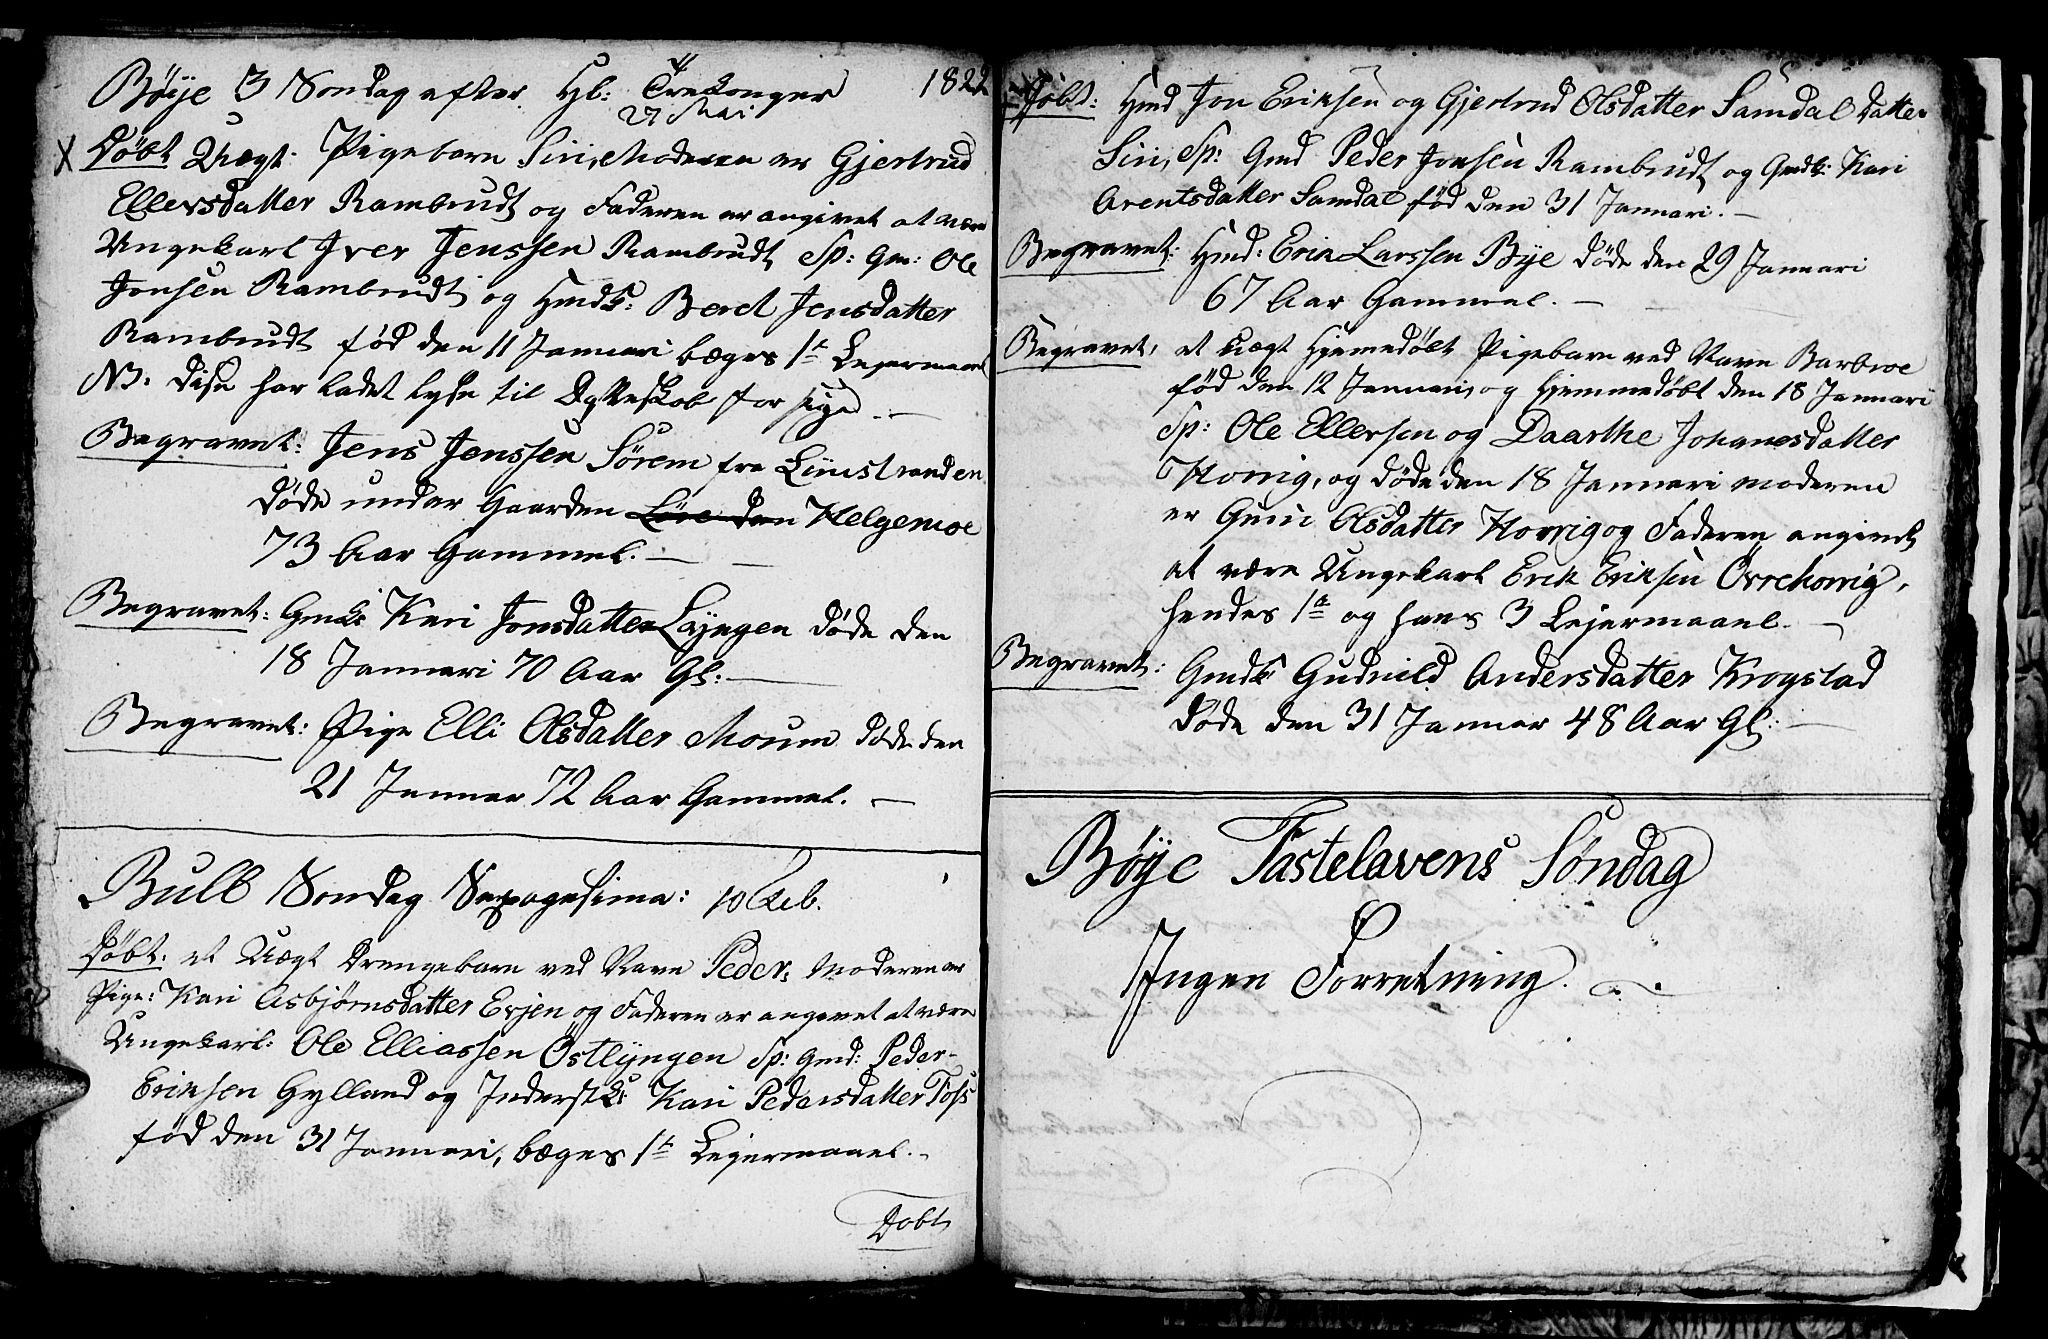 Böÿe 3 Søndag efter Hl: Trekonger 1822
27 Mai
X Döbt Uægt. Pigebarn Siri, Moderen er Gjertrud
Ellevsdatter Rambrudt og Faderen er angivet at være
Ungekarl Iver Jenssen Rambrudt Sp: Gm: Ole
Jonsen Rambrudt og Hmdk: Beret Jensdatter
Rambrudt fød den 11 Januari begges 1te Lejermaal
NB: disse har ladet lyse til Ægteskab for sige. —
Begravet: Jens Jenssen Sörem fra Liinstranden
døde under Gaarden Helgemoe
73 Aar Gammel. —
Begravet: Gmk: Kari Jonsdatter Löÿngen døde den
18 Januari 70 Aar Gl: —
Begravet: Pige Elli Olsdatter Moum døde den
21 Januar 72 Aar Gammel. —
Bulb Søndag Sexagesima: 10 Feb.
Döbt: et Uægt Drengebarn ved Navn Peder, Moderen er
Pige: Kari Asbjørnsdatter Evjen og Faderen er angevet at være
Ungekarl: Ole Elliassen Östlÿngen Sp: Gmd: Peder
Eriksen Gylland og Inderstk: Kari Pedersdatter Foss
fød den 31 Januari, begges 1te Lejermaael. -
Döbt
Döbt: Hmd Jon Eriksen og Gjertrud Olsdatter Samdal datter
Siri, Sp: Gmd Peder Jonsen Rambrudt og Gmdk: Kari
Arentsdatter Samdal fød den 31 Januari. —
Begravet: Hmd: Erik Larssen Bÿe døde den 29 Januari
67 Aar Gammel. —
Begravet, et uægt Hjemedøbt Pigebarn ved Navn Barbroe
fød den 12 Januari, og hjemmedøbt den 18 Januari
Sp: Ole Ellevsen og Daarthe Johanesdatter
Hovrig, og døde den 18 Januari moderen
er Guru Olsdatter Hovrig og Faderen angivet
at være Ungekarl Erik Eriksen Övrehovrig,
hendes 1te og hans 3 Lejermaael. —
Begravet: Gmdk Gudnild Andersdatter Krogstad
døde den 31 Januar 48 Aar Gl: —
Böÿe Fastelavens Søndag
Ingen Forretning.